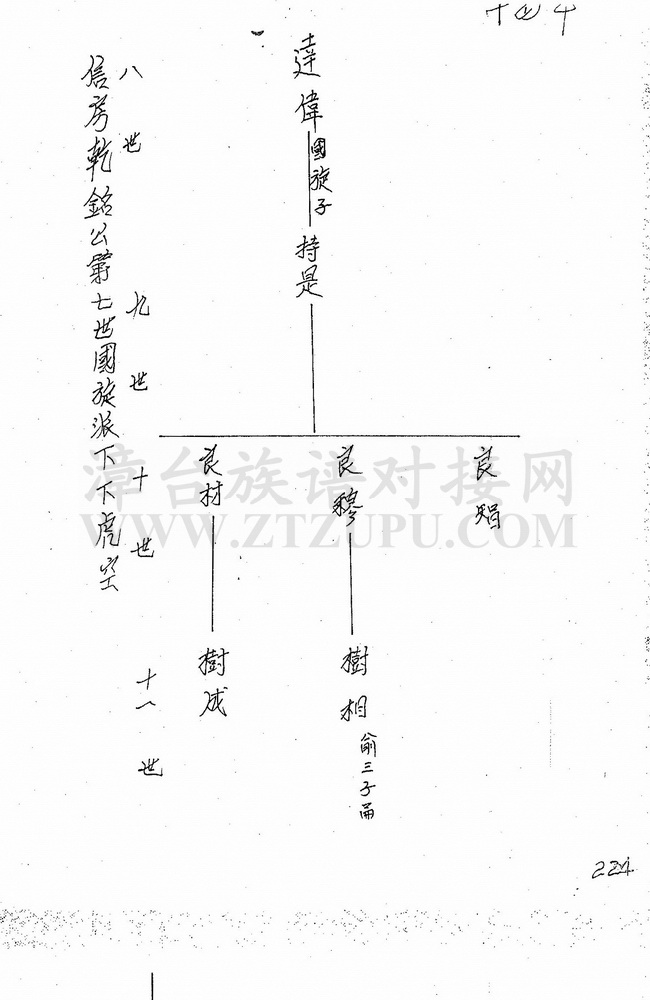 信房乾銘公第七世國旋派下下虎空
八世
九世
十世
十一世
達偉
國旋子
持是
良材
良穆
良
樹成
樹相
三子
漳台族谱对接网
WWW.ZTZUPU.COM
224